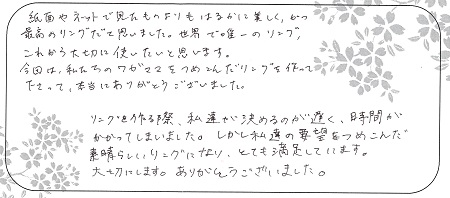 紙面やネットで見たものよりもはるかに美しく、かつ
最高のリングだと思いました。世界で唯一のリング。
これから大切に使いたいと思います。
今回は、私たちのワガママをつめこんだリングを作って
下さって、本当にありがとうございました。
リングを作る際、私達が決めるのが遅く、時間が
かかってしまいました。しかし私達の要望をつめこんだ
素晴らしいリングになり、とても満足しています。
大切にします。ありがとうございました。